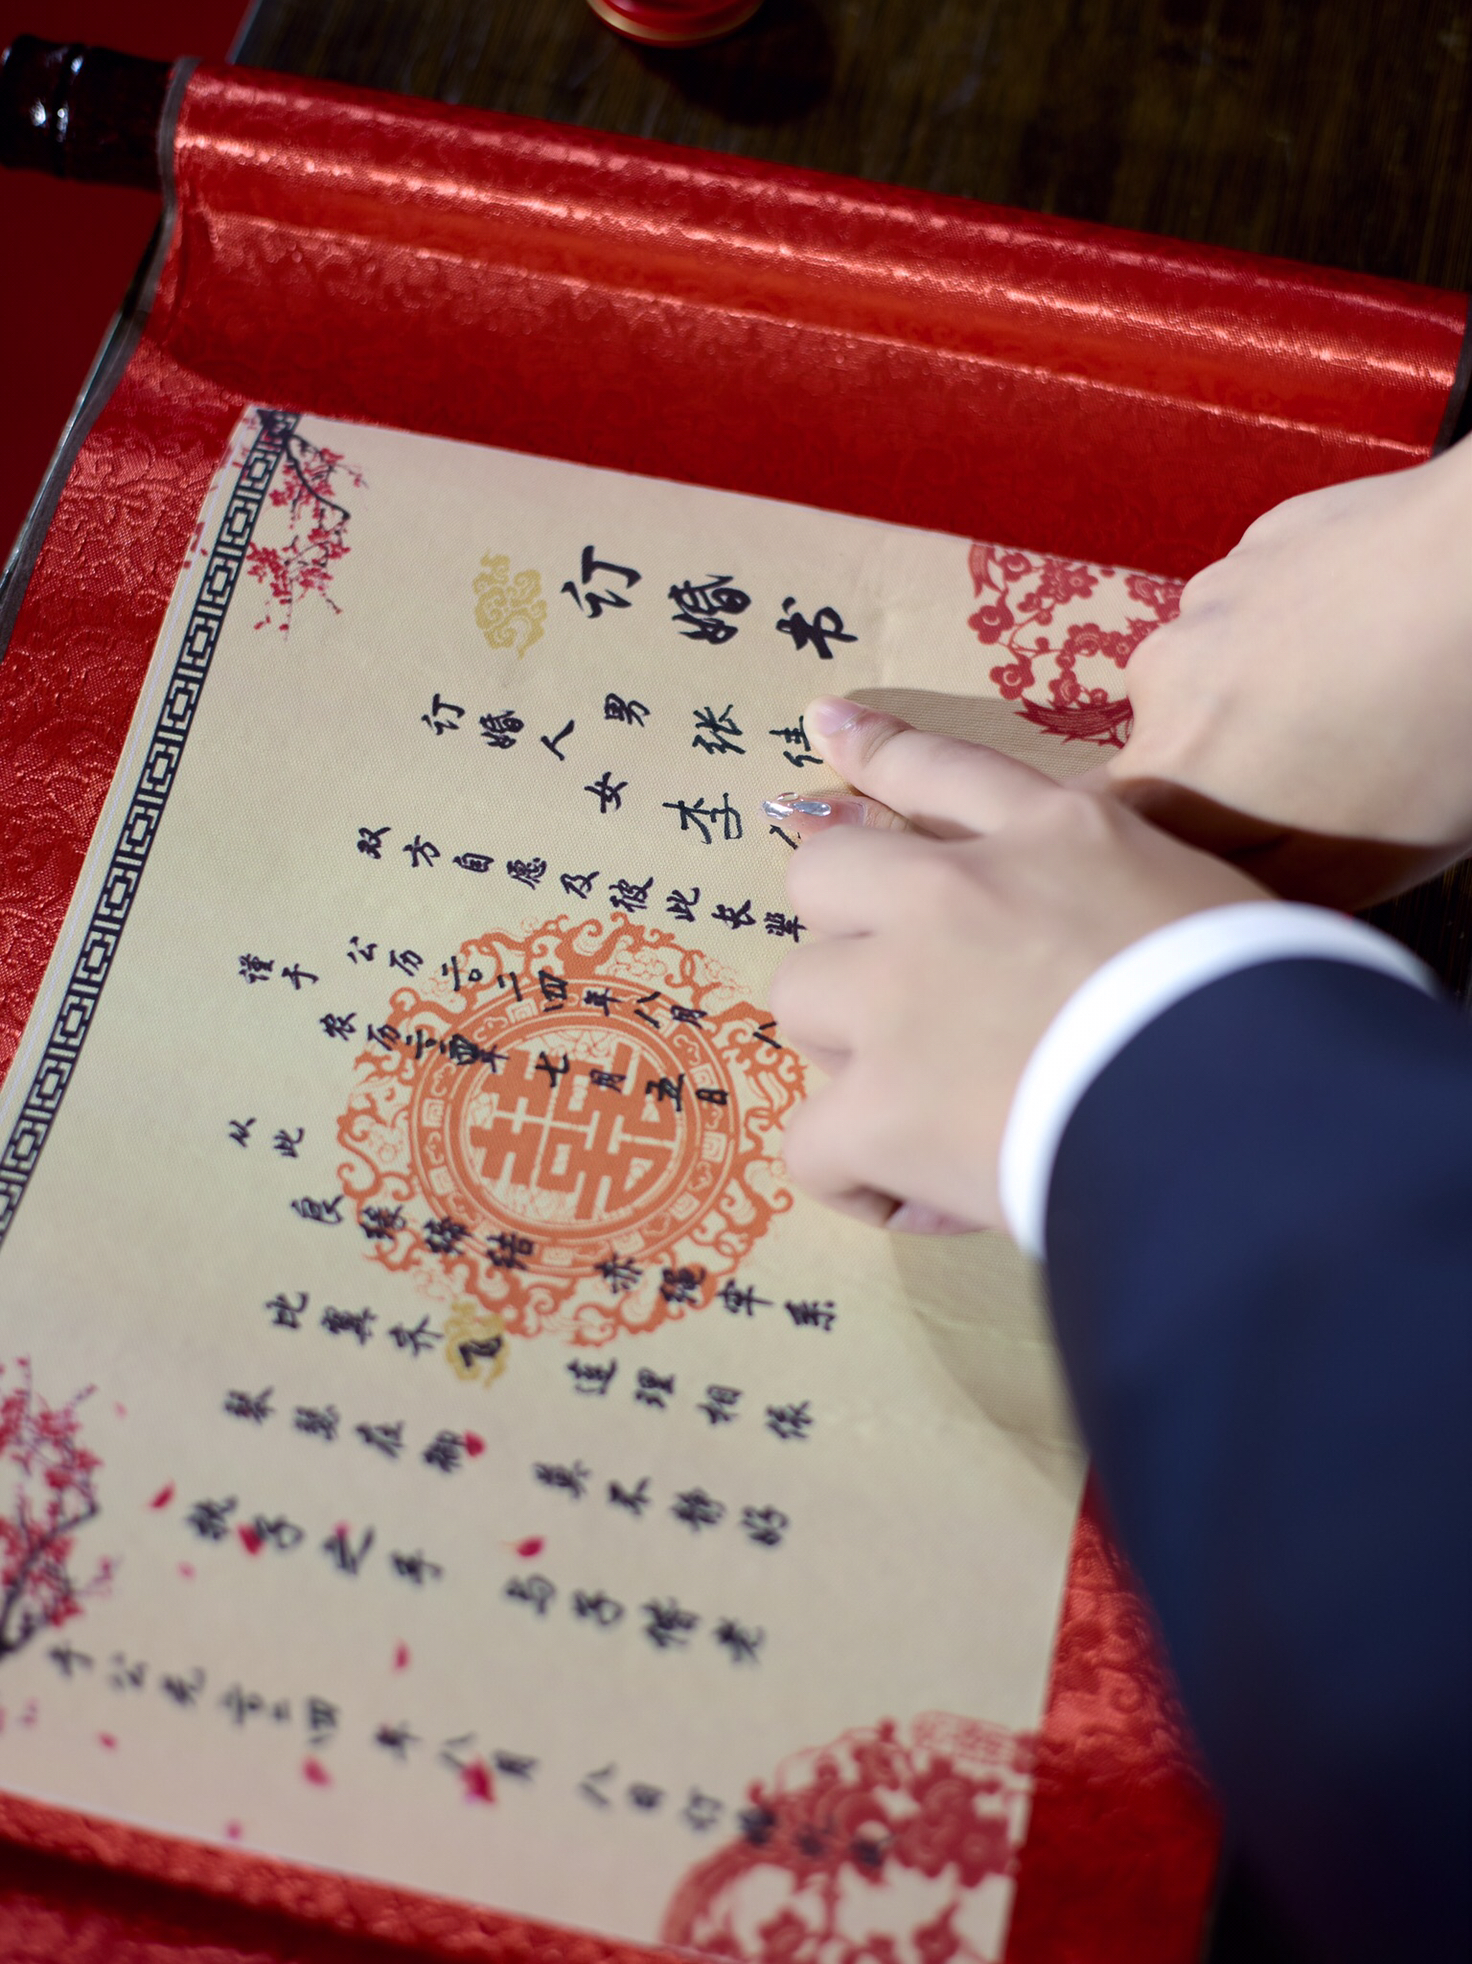 订婚书
订婚人 男 张佳
女 李
双方自愿及彼此长辈
谨于 公历二〇二四年八月八
农历二〇二四年七月五日
从此
良缘缔结 赤绳牢系
比翼齐飞 连理相依
琴瑟在御 莫不静好
执子之手 与子偕老
于公元二〇二四年八月八日订